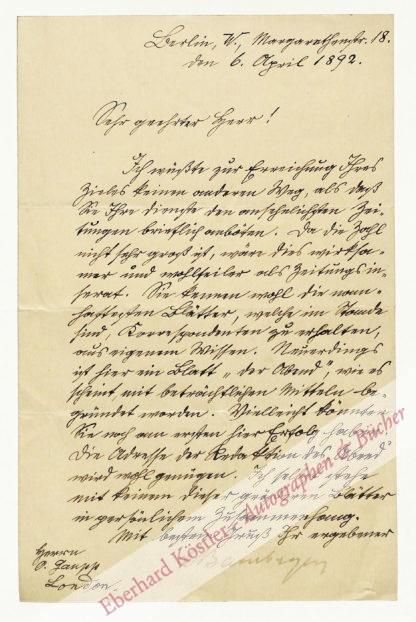 Berlin, W., Margarethenstr. 18.
den 6. April 1892.
Sehr geehrter Herr!
Ich wüßte zur Erreichung Ihres
Zieles keinen anderen Weg, als daß
Sie Ihre Dienste den ansehnlichsten Zei-
tungen brieflich anböten. Da die Zahl
nicht sehr groß ist, wäre dies wirksa-
mer und wohlfeiler als Zeitungsin-
serat. Sie kennen wohl die nam-
haftesten Blätter, welche im Stande
sind, Korrespondenten zu erhalten,
aus eigenem Wissen. Neuerdings
ist hier ein Blatt „der Abend", wie es
scheint mit beträchtlichen Mitteln be-
gründet worden. Vielleicht könnten
Sie noch am ersten hier Erfolg haben.
Die Adresse der Redaktion des „Abend"
wird wohl genügen. Ich selbst stehe
mit keinem dieser größeren Blätter
in persönlichem Zusammenhang.
Mit bestem Gruß Ihr ergebener
Bamberger
Herrn
London
Eberhard Köstler Autographen & Bücher